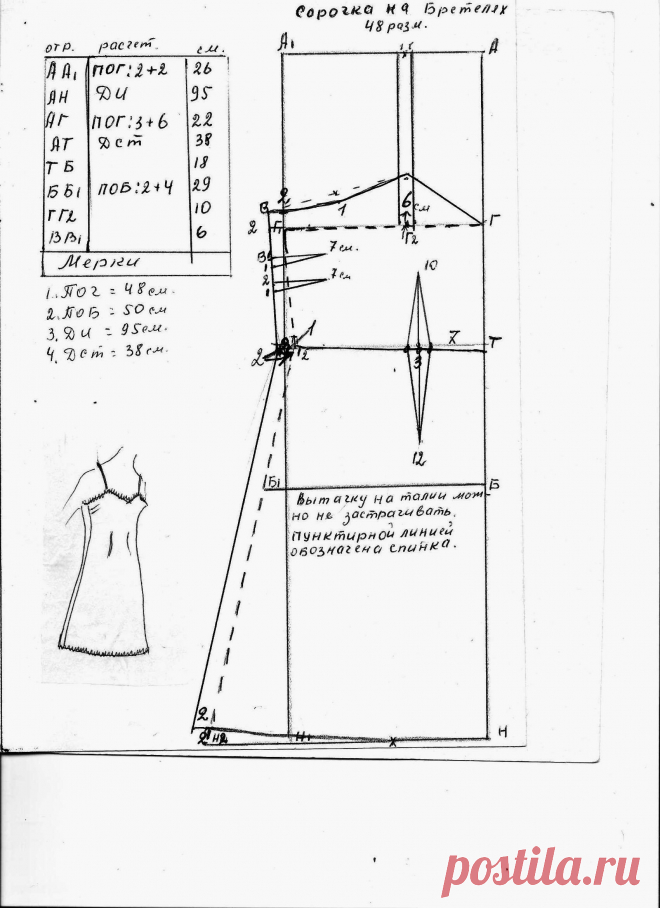 Сорочка на Бретелях
48 разм.
отр. расчет. см.
АА₁ ПОГ:2+2 26
АН ДИ 95
АГ ПОГ:3+6 22
АТ Дст 38
ТБ 18
ББ₁ ПОБ:2+4 29
ГГ2 10
ВВ₁ 6
Мерки
1. ПОГ = 48 см.
2. ПОБ = 50 см
3. ДИ = 95 см.
4. Дст = 38 см.
А₁ А
В 2 1 6 см
2 Г₁ Г2 Г
В 7 см.
2 7 см
10
1
2 Т2 3 Т
12
Б₁ Б
Вытачку на талии мож-
но не застрагивать.
Пунктирной линией
обозначена спинка.
2
2 Н2 Н₁ Х Н
postila.ru